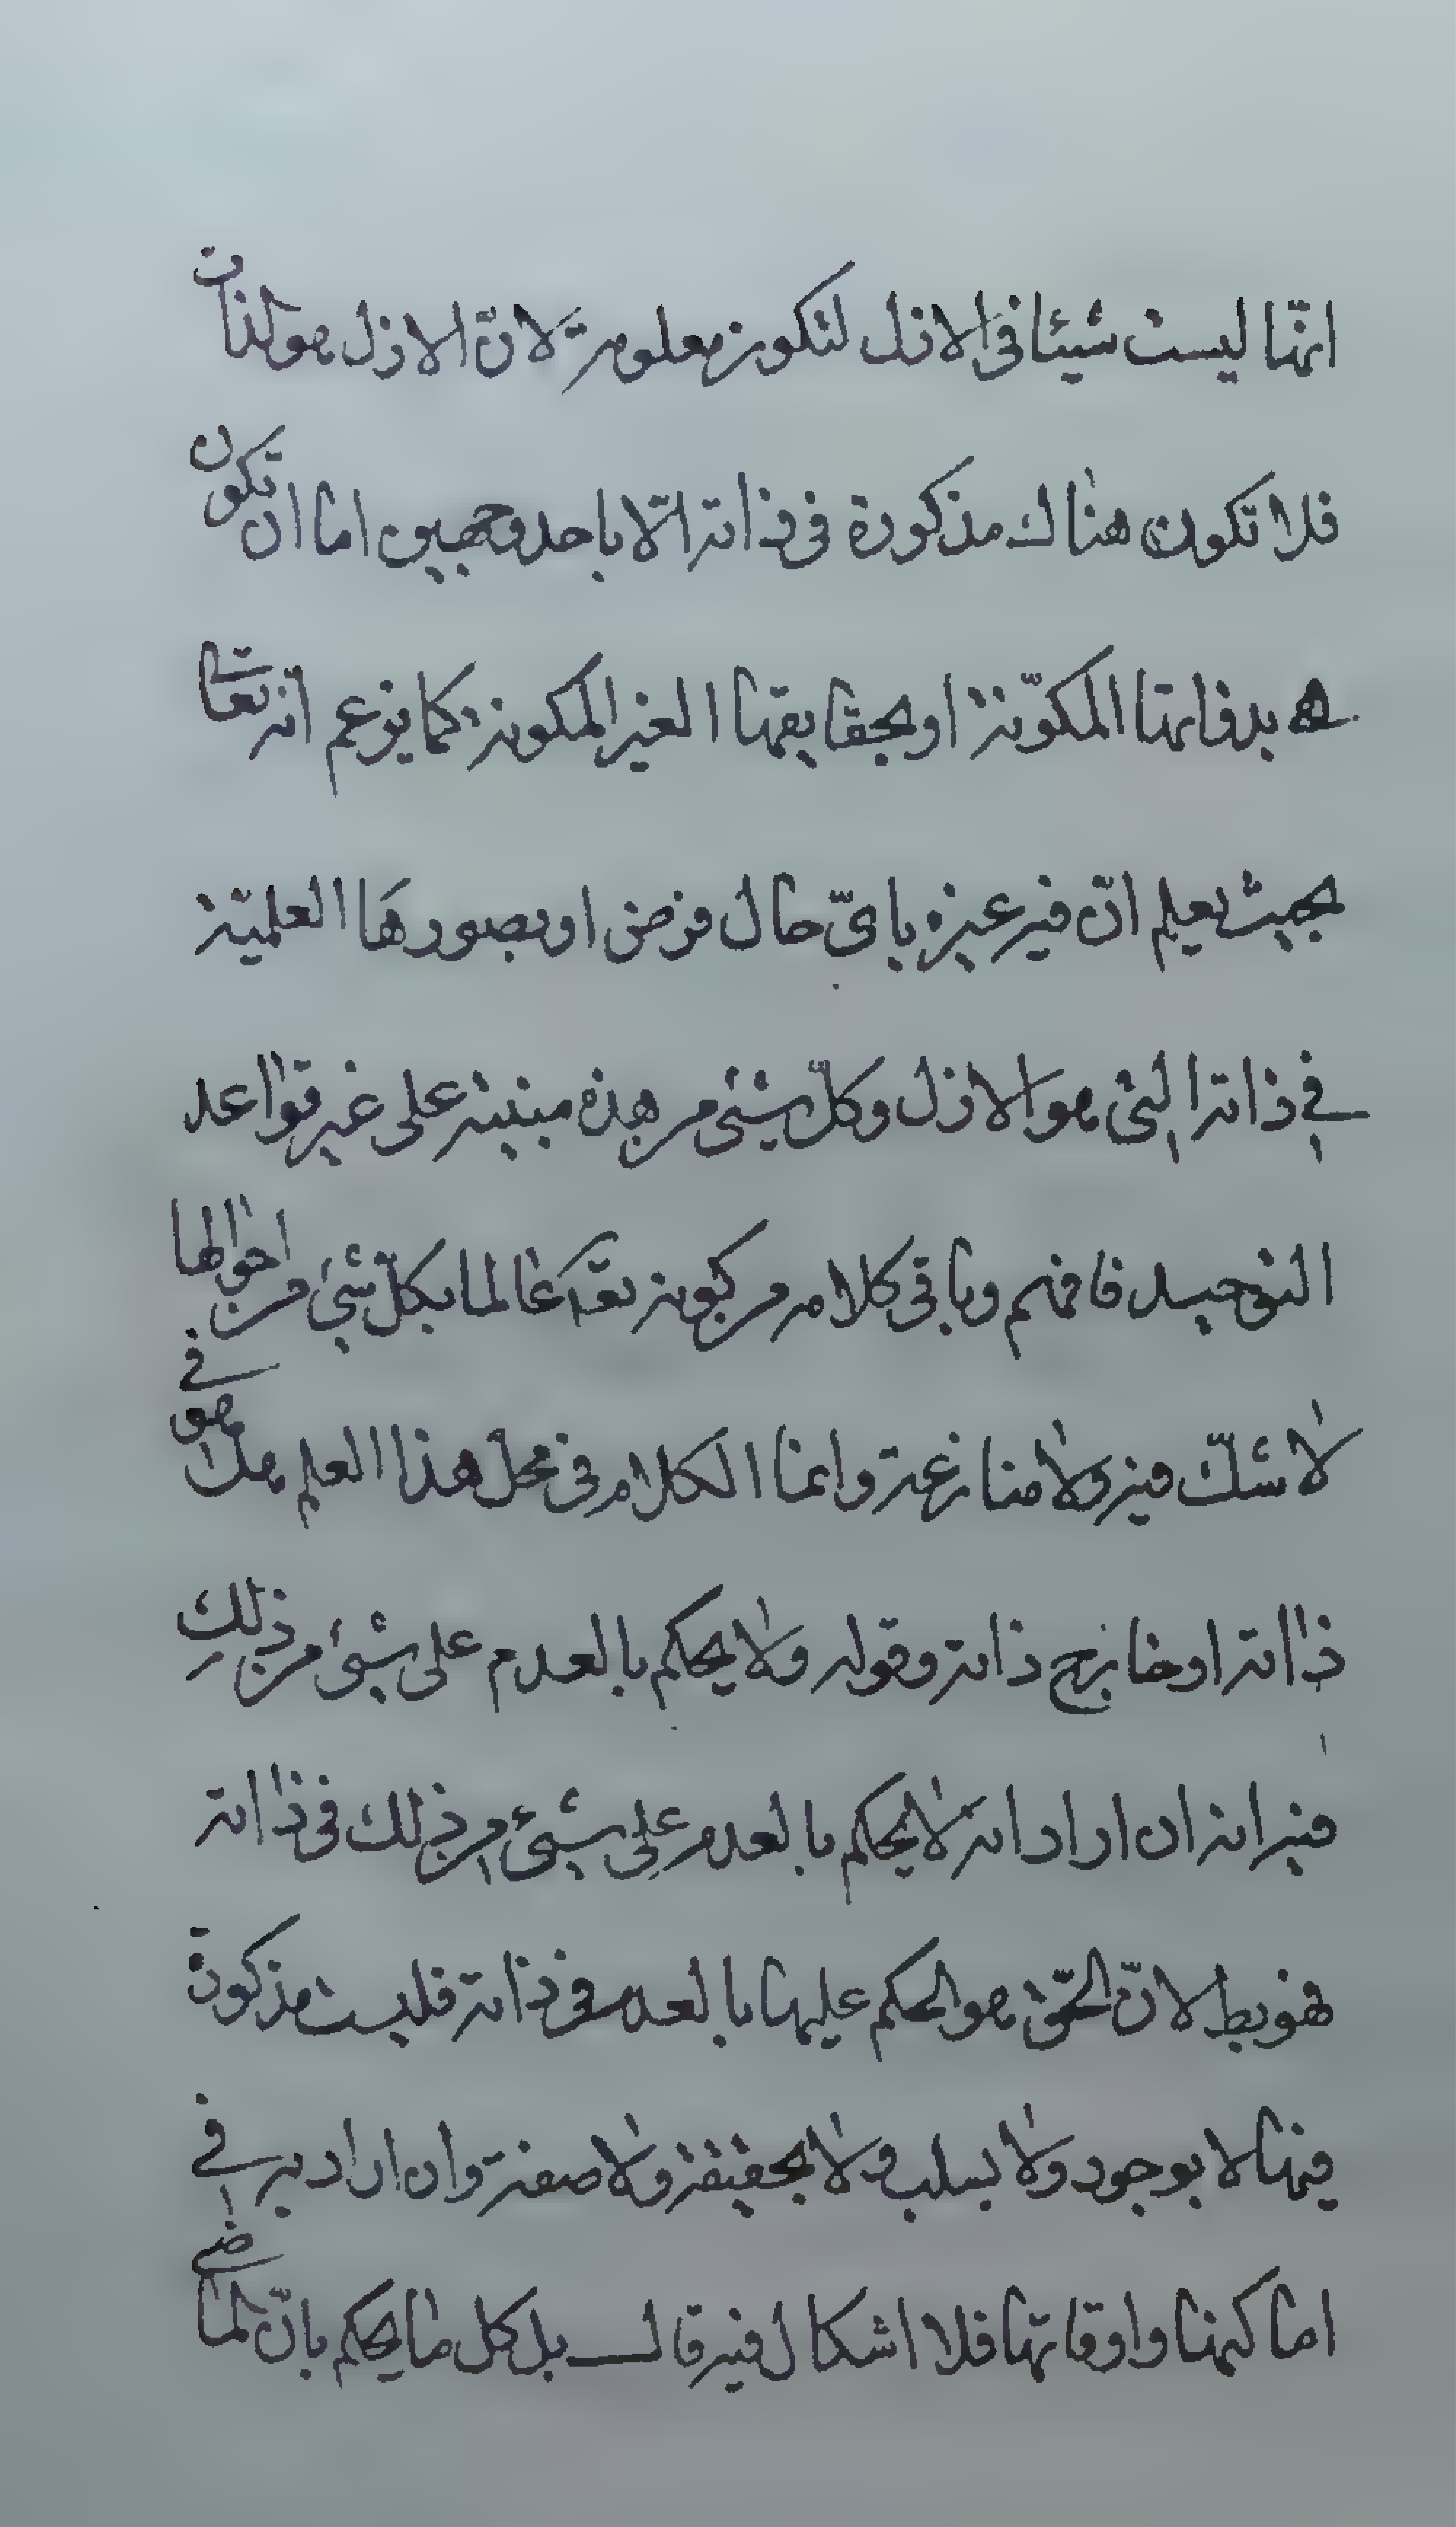 انها ليست شيئا فى الازل لتكون معلومة لانّ الازل هو الذات
فلا تكون هناك مذكورة فى ذاته الّا باحد وجهين اما ان تكون
هى بذواتها المكوّنة او بحقايقها الغير المكونة كما يزعم انه تعالى
بحيث يعلم انّ فيه غيره باىّ حال فرض او بصورها العلميّة
فى ذاته التى هو الازل وكلّ شىء من هذه مبنية على غير قواعد
التوحيد فافهم وباقى كلامه من كونه تعه عالما بكلّ شىء من احوالها
لا شكّ فيه ولا منازعة وانما الكلام فى محلّ هذا العلم هل هو فى
ذاته او خارج ذاته وقوله ولا يحكم بالعدم على شىء من ذلك
فيه انه ان اراد انه لا يحكم بالعدم على شىء من ذلك فى ذاته
فهو بط لانّ الحقّ هو الحكم عليها بالعدم فى ذاته فليست مذكورة
فيها لا بوجود ولا بسلب ولا بحقيقة ولا صفة وان اراد به فى
اماكنها واوقاتها فلا اشكال فيه قال بل كل ما يحكم بانّ لما مضى